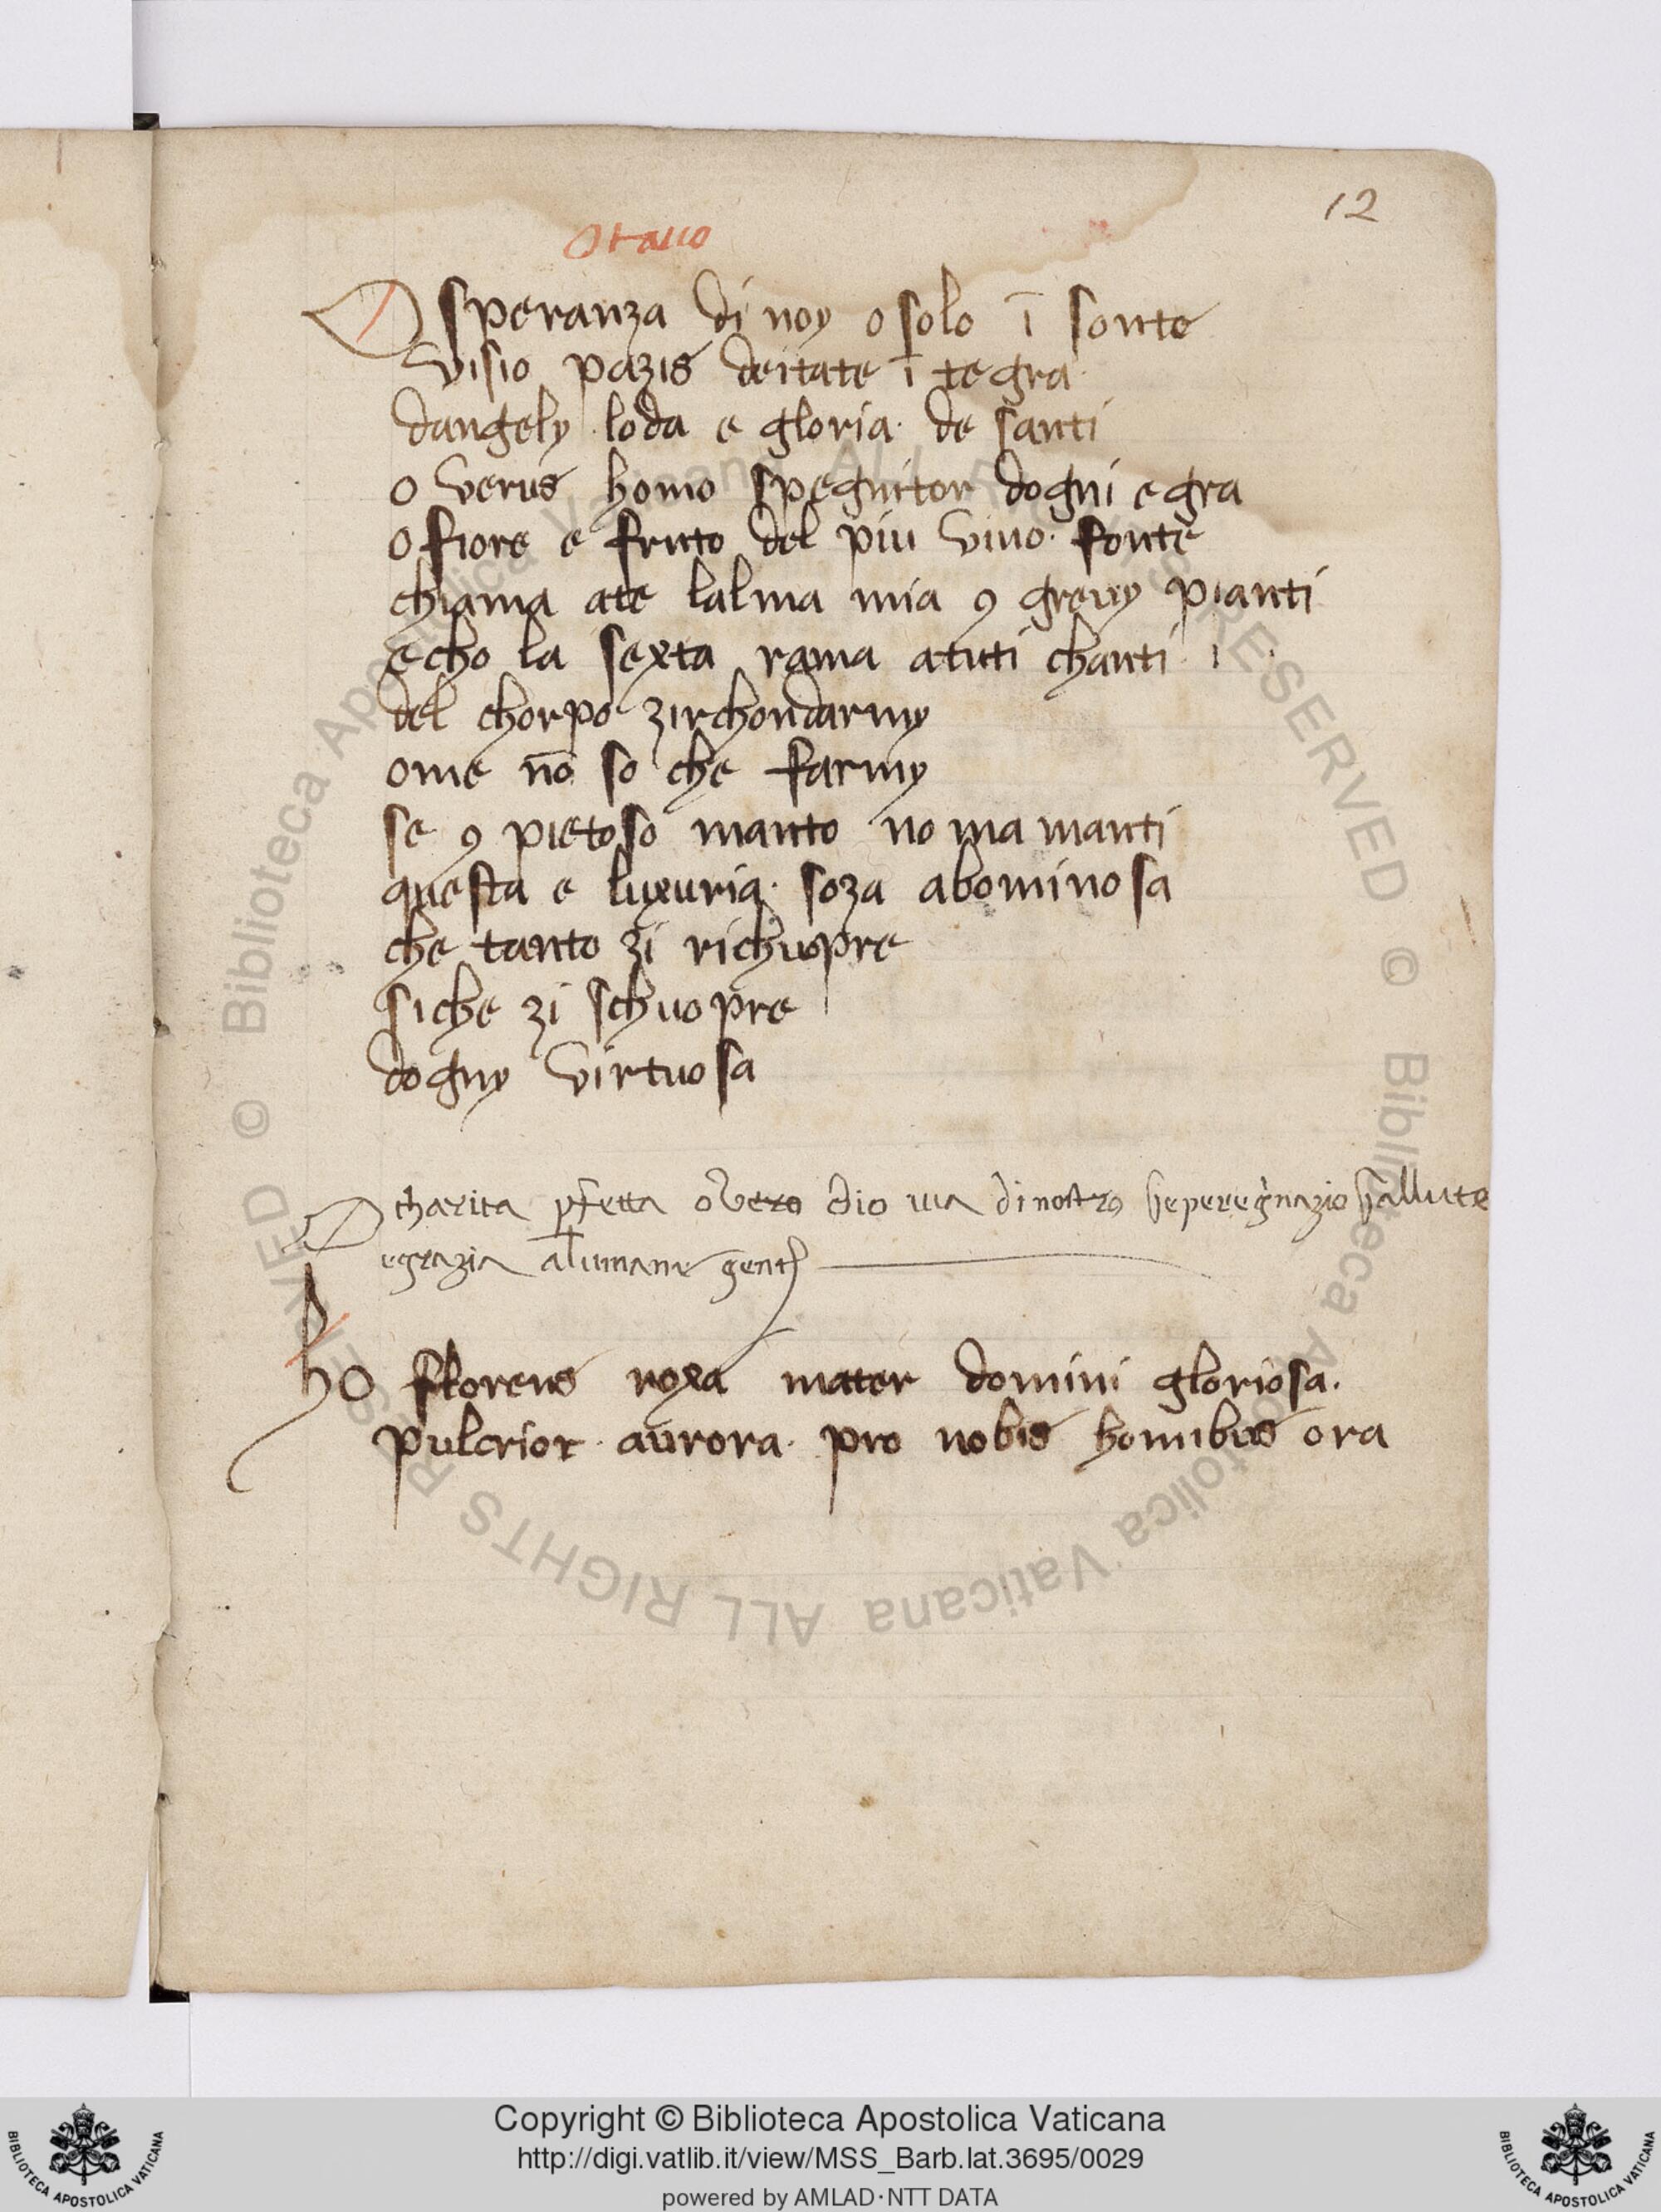 12
Otauo
O speranza di noy o solo ī sonte
visio pazis deitate ī tegra
dangely loda e gloria de santi
o verus homo spegnitor dogni egra
o fiore e fruto del piu vivo fonte
chiama ate lalma mia 9 grevy pianti
echo la sexta rama atuti chanti
del chorpo zirchondarmy
ome nō so che farmy
se 9 pietoso manto no ma manti
questa e luxuria soza abominosa
che tanto zi richuopre
siche zi schuopre
dogny virtuosa
O charita pfetta o vero dio via di nostro peregnazio sallute
e grazia alumane gent
ho florens roxa mater domini gloriosa.
pulcrior aurora pro nobis homibus ora
© Biblioteca Apostolica Vaticana ALL RIGHTS RESERVED © Biblioteca Apostolica Vaticana ALL RIGHTS RESERVED
Copyright © Biblioteca Apostolica Vaticana
http://digi.vatlib.it/view/MSS_Barb.lat.3695/0029
powered by AMLAD·NTT DATA
BIBLIOTECA APOSTOLICA VATICANA
BIBLIOTECA APOSTOLICA VATICANA